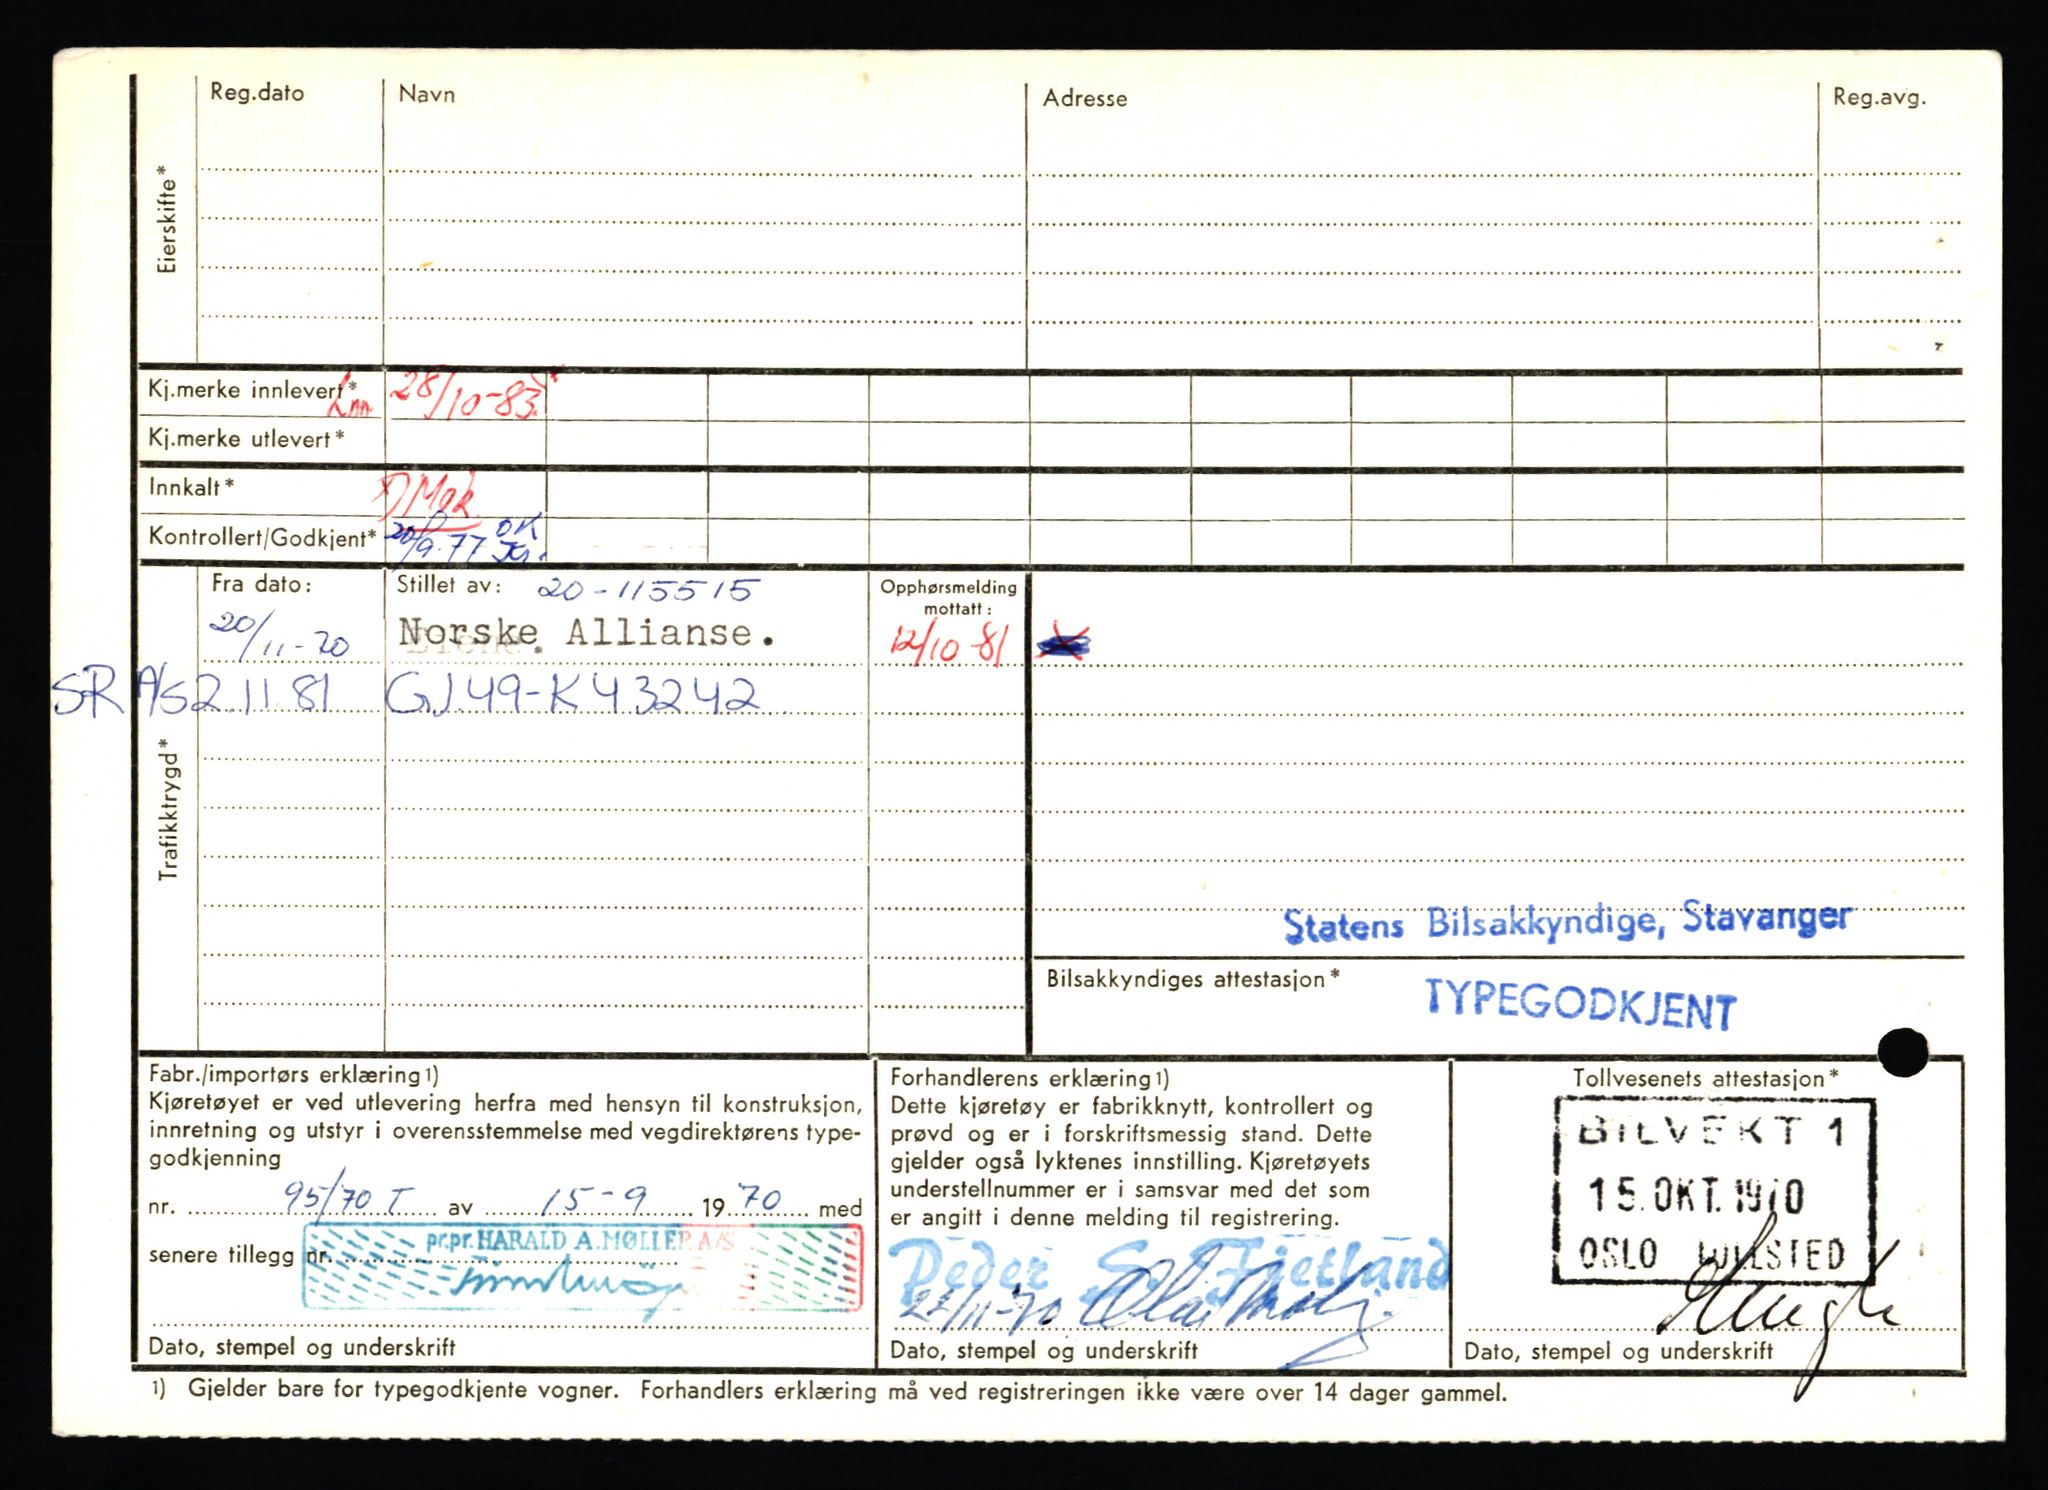 Reg.dato Navn Adresse Reg.avg.
Eierskifte*
Kj.merke innlevert* Inn 28/10-83
Kj.merke utlevert*
Innkalt*
Kontrollert/Godkjent* 20/9.77 OK
Trafikktrygd*
Fra dato: Stillet av: 20-115515 Opphørsmelding
mottatt:
20/11-70 Norske Allianse. 12/10-81
SR A/S 2.11.81 GJ49-K43242
Statens Bilsakkyndige, Stavanger
Bilsakkyndiges attestasjon*
TYPEGODKJENT
Fabr./importørs erklæring1)
Kjøretøyet er ved utlevering herfra med hensyn til konstruksjon,
innretning og utstyr i overensstemmelse med vegdirektørens type-
godkjenning
nr. 95/70 T av 15-9 1970 med
senere tillegg nr.
pr.pr. HARALD A. MØLLER A/S
Dato, stempel og underskrift
Forhandlerens erklæring1)
Dette kjøretøy er fabrikknytt, kontrollert og
prøvd og er i forskriftsmessig stand. Dette
gjelder også lyktenes innstilling. Kjøretøyets
understellnummer er i samsvar med det som
er angitt i denne melding til registrering.
Peder S. Fjetland
Dato, stempel og underskrift
Tollvesenets attestasjon*
BILVEKT 1
15. OKT. 1970
OSLO
Dato, stempel og underskrift
1) Gjelder bare for typegodkjente vogner. Forhandlers erklæring må ved registreringen ikke være over 14 dager gammel.